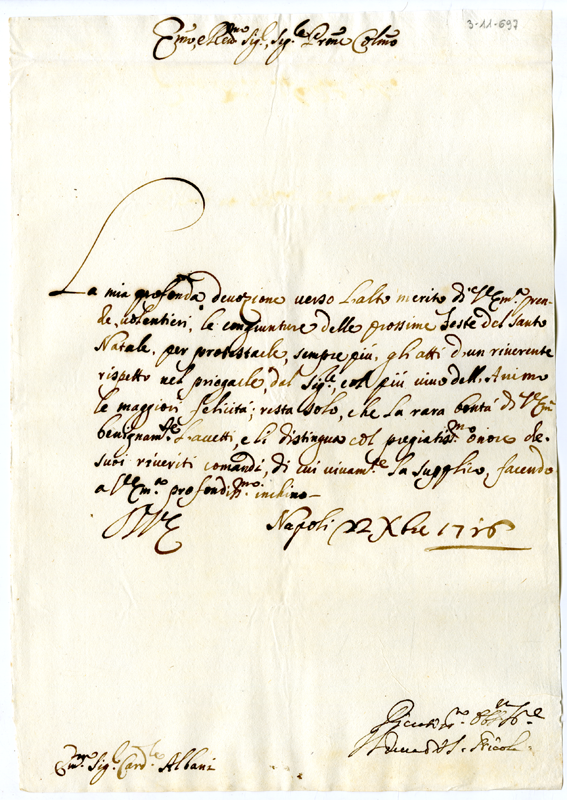 3-11-697
Em̃o, e Reu.mo Sig.r, Sig.r Prõne Colmo
La mia profonda deuozione uerso l'alto merito di V.E Em.a pren-
de, uolentieri, le congiunture delle prossime Feste del Santo
Natale, per protestarle, sempre più, gli atti d'un riuerente
rispetto nel priegarle, dal Sig.re, col più uiuo dell'Animo
le maggiori felicità; resta solo, che la rara bontà di V.E Em.a
benignam.te l'accetti, e li distingua col pregiatis.mo onore de'
suoi riueriti comandi, di cui uiuam.te la supplico, facendo
a V.E Em.a profondis.mo inchino
Di V.E Napoli 22 Xbre 1716
Em.mo Sig.r Card.le Albani